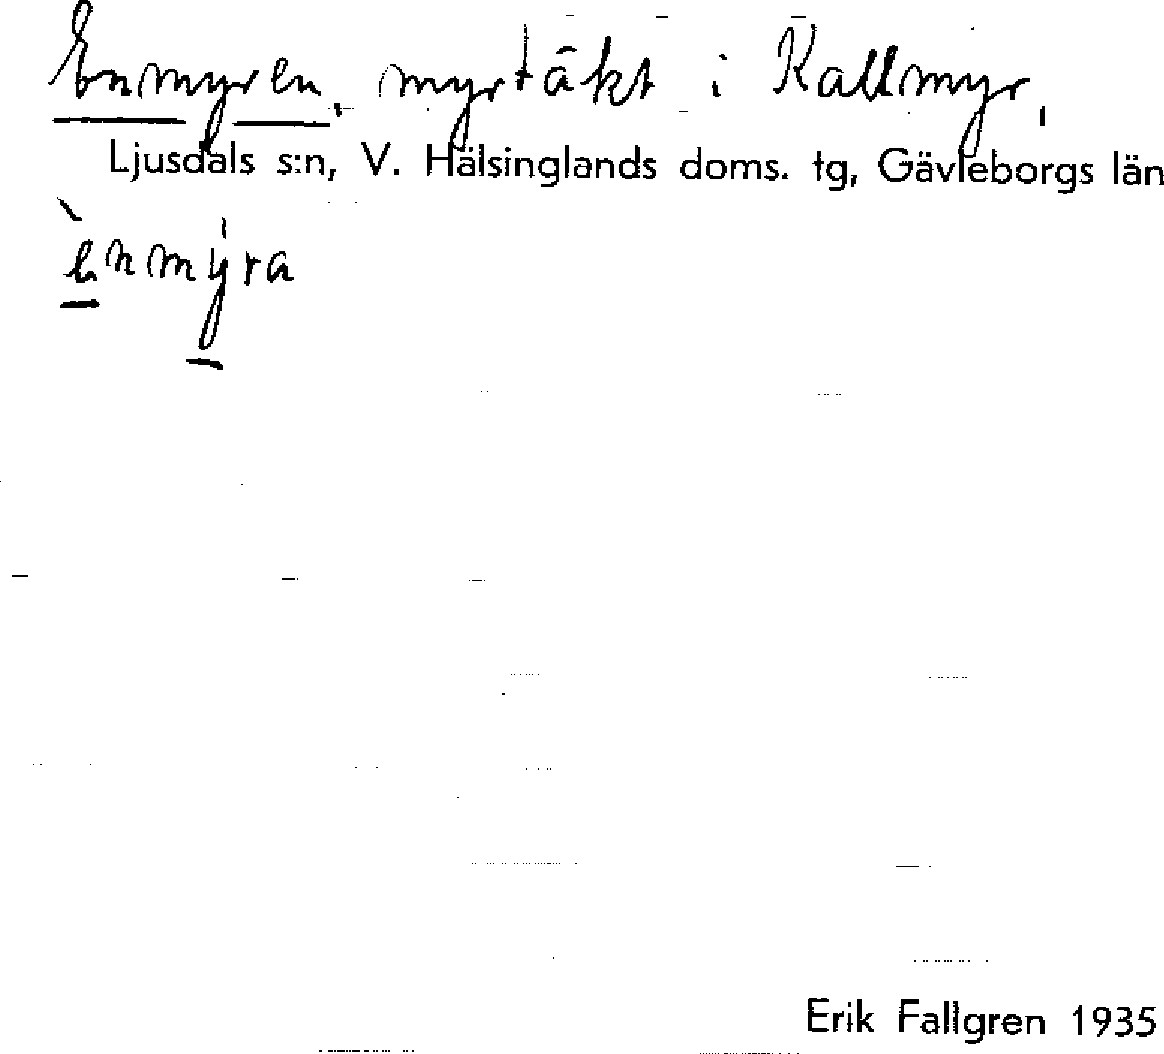 Enmyren, myrtäkt i Kallmyr,
Ljusdals s:n, V. Hälsinglands doms. tg, Gävleborgs län
ènmy̍ra
Erik Fallgren 1935